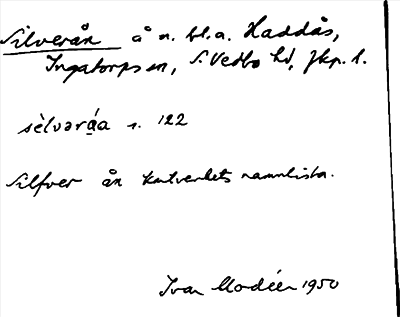 Silverån å n. bl.a. Haddås,
Ingatorps sn, S. Vedbo hd, Jkp. l.
sèlvərǻa s. 122
Silfver ån Kartverkets namnlista.
Ivar Modéer 1950